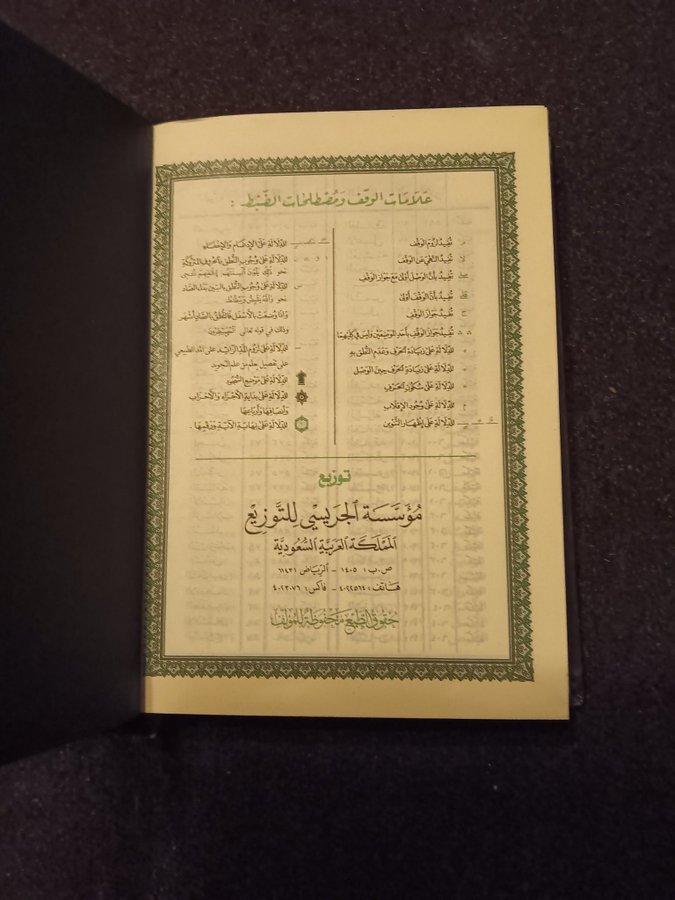 عَلَامَات الوَقف وَمُصْطَلحَات الضَّبْط :
م تُفِيدُ لزُومَ الوَقف
لا تُفِيدُ النَّهْيَ عَنِ الوَقف
صلى تُفِيدُ بِأَنَّ الوَصْلَ أَوْلَى مَعَ جَوَازِ الوَقف
قلى تُفِيدُ بِأَنَّ الوَقفَ أَوْلَى
ج تُفِيدُ جَوَازَ الوَقف
تُفِيدُ جَوَازَ الوَقف بِأَحَدِ المَوْضِعَيْن وَلَيْسَ فِي كِلَيْهِمَا
لِلدِّلَالَةِ عَلَى زِيَادَةِ الحَرْف وَعَدَمِ النُّطْق بِهِ
لِلدِّلَالَةِ عَلَى زِيَادَةِ الحَرْف حِينَ الوَصْل
لِلدِّلَالَةِ عَلَى سُكُونِ الحَرْف
م لِلدِّلَالَةِ عَلَى وُجُودِ الإِقْلَاب
لِلدِّلَالَةِ عَلَى إِظْهَارِ التَّنْوِين
لِلدِّلَالَةِ عَلَى الإِدْغَام وَالإِخْفَاء
لِلدِّلَالَةِ عَلَى وُجُوب النُّطْق بِالحُرُوف المَتْرُوكَة
س لِلدِّلَالَةِ عَلَى وُجُوب النُّطْق بِالسِّين بَدَل الصَّاد
نحو وَاللَّهُ يَقْبِضُ وَيَبْصُطُ
وَإِذَا وُضِعَتْ بِالأَسْفَل فَالنُّطْقُ بِالصَّادِ أَشْهَر
وَذَلِكَ فِي قَوْلِهِ تَعَالَى
لِلدِّلَالَةِ عَلَى لُزُوم المَدِّ الزَّائِد عَلَى المَدّ الطَّبِيعِي
عَلَى تَفْصِيل يُعْلَم مِن عِلْم التَّجْوِيد
لِلدِّلَالَةِ عَلَى مَوْضِعِ السُّجُود
لِلدِّلَالَةِ عَلَى بِدَايَةِ الأَجْزَاء وَالأَحْزَاب
وَأَنصَافِهَا وَأَرْبَاعِهَا
لِلدِّلَالَةِ عَلَى نِهَايَةِ الآيَة وَرَقْمِهَا .
توزيع
مُؤَسَّسَة الجريسي لِلتَّوْزِيع
المَمْلَكَة العَرَبِيَّة السُّعُودِيَّة
ص.ب : ١٤٠٥ - الرِّيَاض ١١٤٣١
هَاتف : ٤٠٢٢٥٦٤ - فاكس : ٤٠٢٣٠٧٦
حُقُوق الطَّبْع مَحْفُوظَة لِلمُؤَلِّف